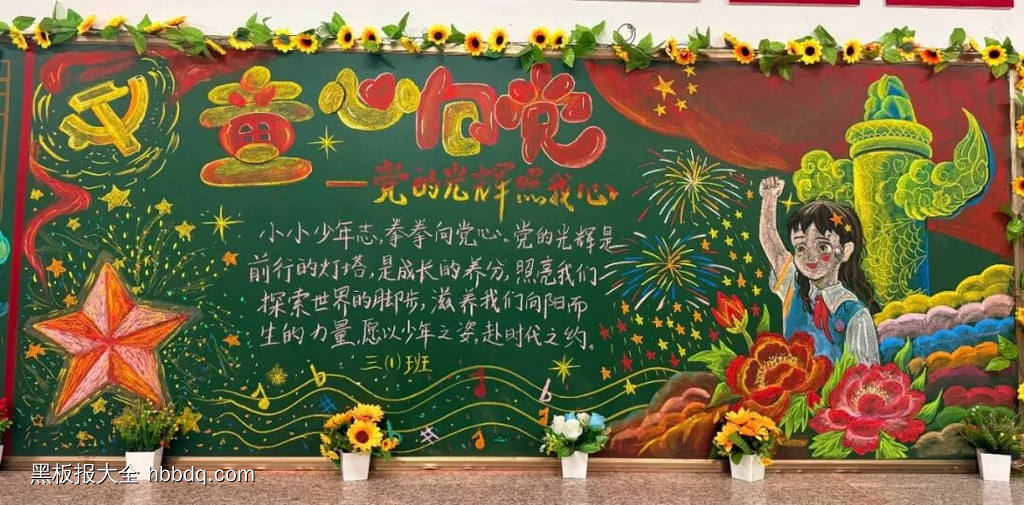 童心向党
一党的光辉照我心
小小少年志,拳拳向党心。党的光辉是
前行的灯塔,是成长的养分,照亮我们
探索世界的脚步,滋养我们向阳而
生的力量,愿以少年之姿,赴时代之约。
三(1)班
黑板报大全 hbbdq.com